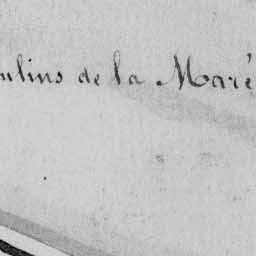 ulins de la Maré